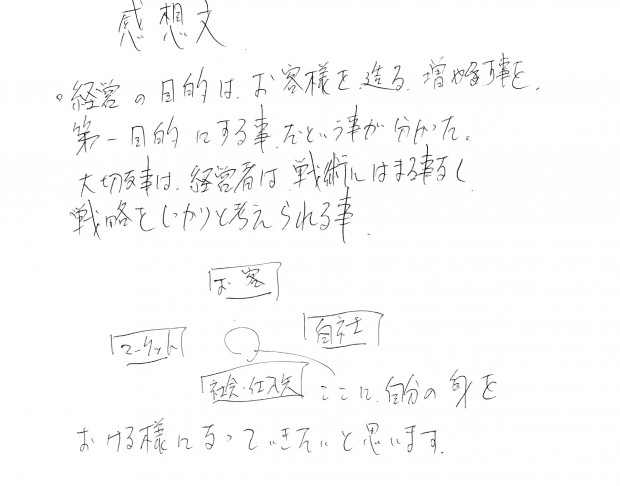 感想文
・経営の目的は、お客様を造る、増やす事を、
第一目的にする事、だという事が分かった。
大切な事は、経営者は、戦術にはまる事なく
戦略をしっかりと考えられる事、
お客
マーケット
自社
社会・仕入先
ここに、自分の身を
おける様になっていきたいと思います。